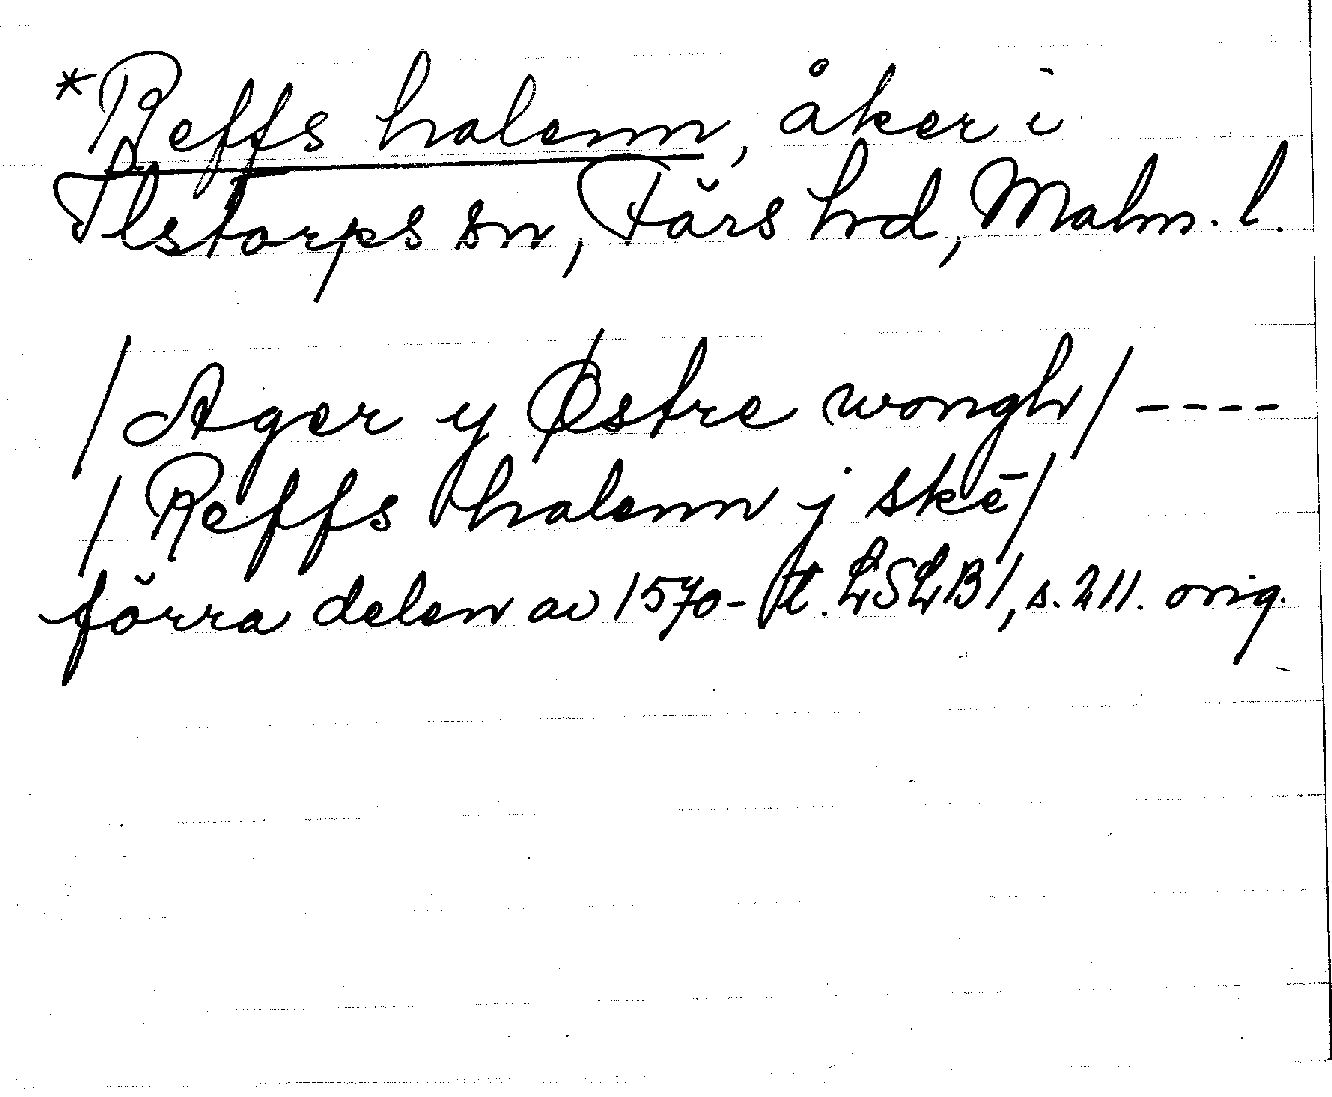 *Reffs halenn, åker i
Ilstorps sn, Färs hd, Malm. l.
/Ager y Østre wongh/ ----
/Reffs halenn j skē/
förra delen av 1570-t. LSLB1, s. 211. orig.